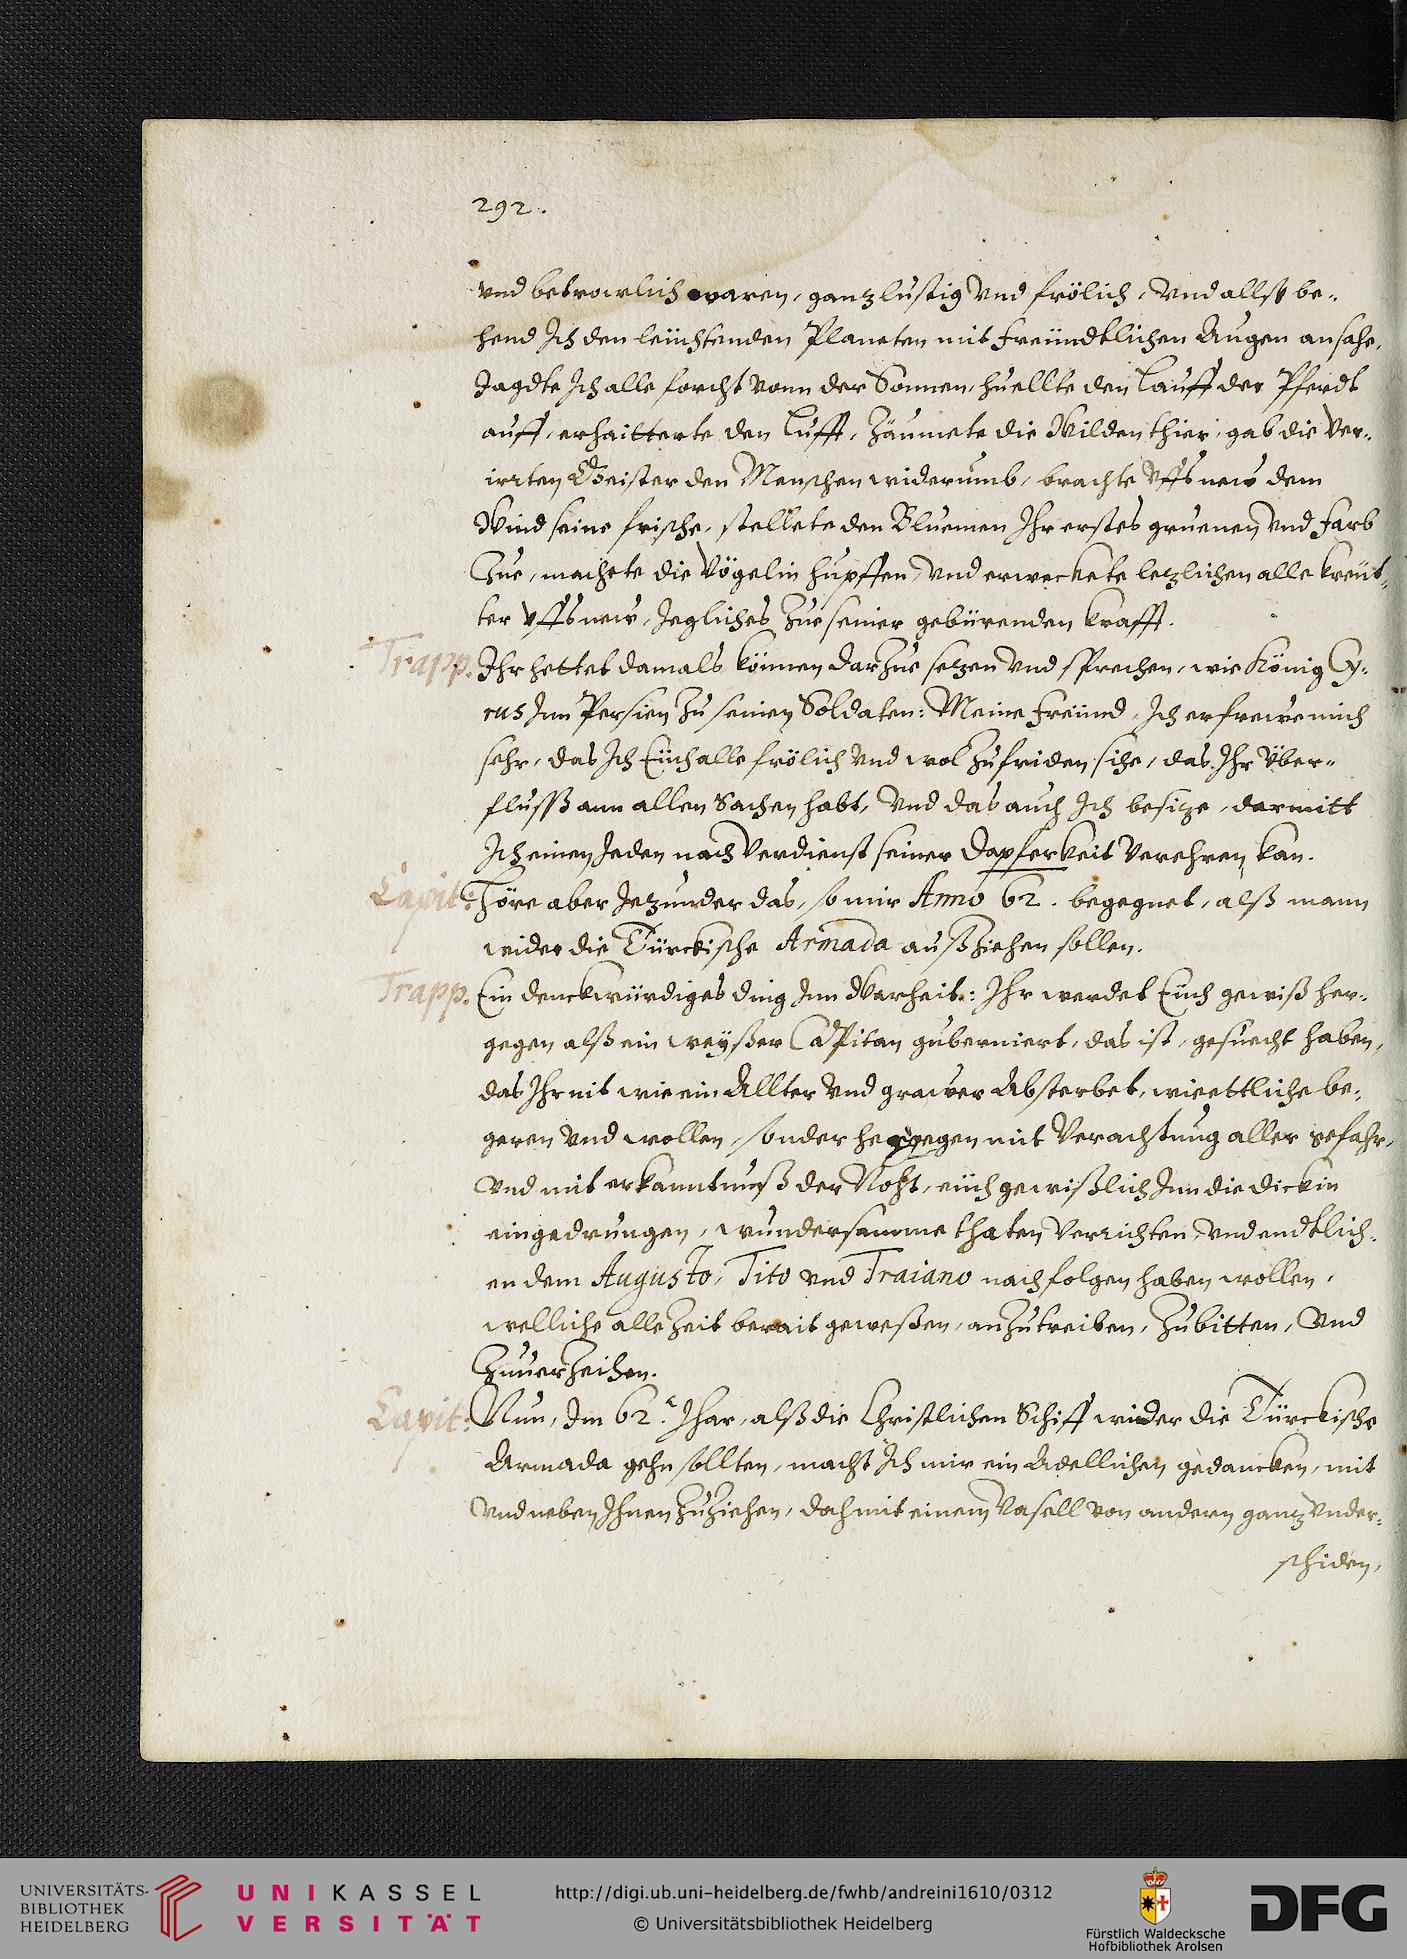 292.
vnd betrowrlich waren, ganz lustig vnd frölich, vnd allß be-
hend Ich den leüchtenden Planeten mit freündtlichen Augen ansahe,
Jagdte Ich alle forcht vonn der Sonnen, huellte den Lauff der Pferdt
auff, erhaitterte den Lufft, Zäumete die Wilden thier, gab die Ver-
irrten Geister den Menschen widerumb, brachte vffs new dem
Wind seine frische, stellete den Bluemen Ihr erstes gruenen vnd Farb
Zue, machete die Vögelin hupffen, vnd erweckete letzlichen alle kreüt-
ter vffs new, Jegliches Zue seiner gebürenden krafft.
Trapp. Ihr hettet damals können darZue setzen vnd sprechen, wie König Cy-
rus Inn Persien Zu seinen Soldaten: Meine Freünd, Ich erfrewe mich
sehr, das Ich Eüch alle frölich vnd wol Zufriden sihe, das Ihr Über-
flusß ann allen Sachen habt, vnd das auch Ich besitze, darmitt
Ich einen Jeden nach Verdienst seiner Dapferkeit Verehren kan.
Capit: Höre aber Jetzunder das, so mir Anno 62. begegnet, alß mann
wider die Türckische Armada außZiehen sollen.
Trapp. Ein denckwürdiges ding Inn Warheit: Ihr werdet Eüch gewiß her-
gegen alß ein weyßer Capitan guberniert, das ist, gesuecht haben,
das Ihr nit wie ein Allter vnd grawer Absterbet, wie ettliche be-
geren vnd wollen, sonder hergegen mit Verachtung aller gefahr,
vnd mit erkanntnuß der Noht, eüch gewißlich Inn die dickin
eingedrungen, wundersamme thaten Verrichten, vnd endtlich-
en dem Augusto, Tito vnd Traiano nachfolgen haben wollen,
welliche alle Zeit berait geweßen, anZutreiben, Zubitten, vnd
ZuuerZeihen.
Capit: Nun, Im 62. Jhar, alß die Christlichen Schiff wider die Türckische
Armada gehn sollten, macht Ich mir ein Adellichen gedancken, mit
vnd neben Ihnen ZuZiehen, doch mit einem Vasell von andern gantz vnder-
schiden,
UNIVERSITÄTS-
BIBLIOTHEK
HEIDELBERG
UNIKASSEL
VERSITÄT
http://digi.ub.uni-heidelberg.de/fwhb/andreini1610/0312
© Universitätsbibliothek Heidelberg
Fürstlich Waldecksche
Hofbibliothek Arolsen
DFG